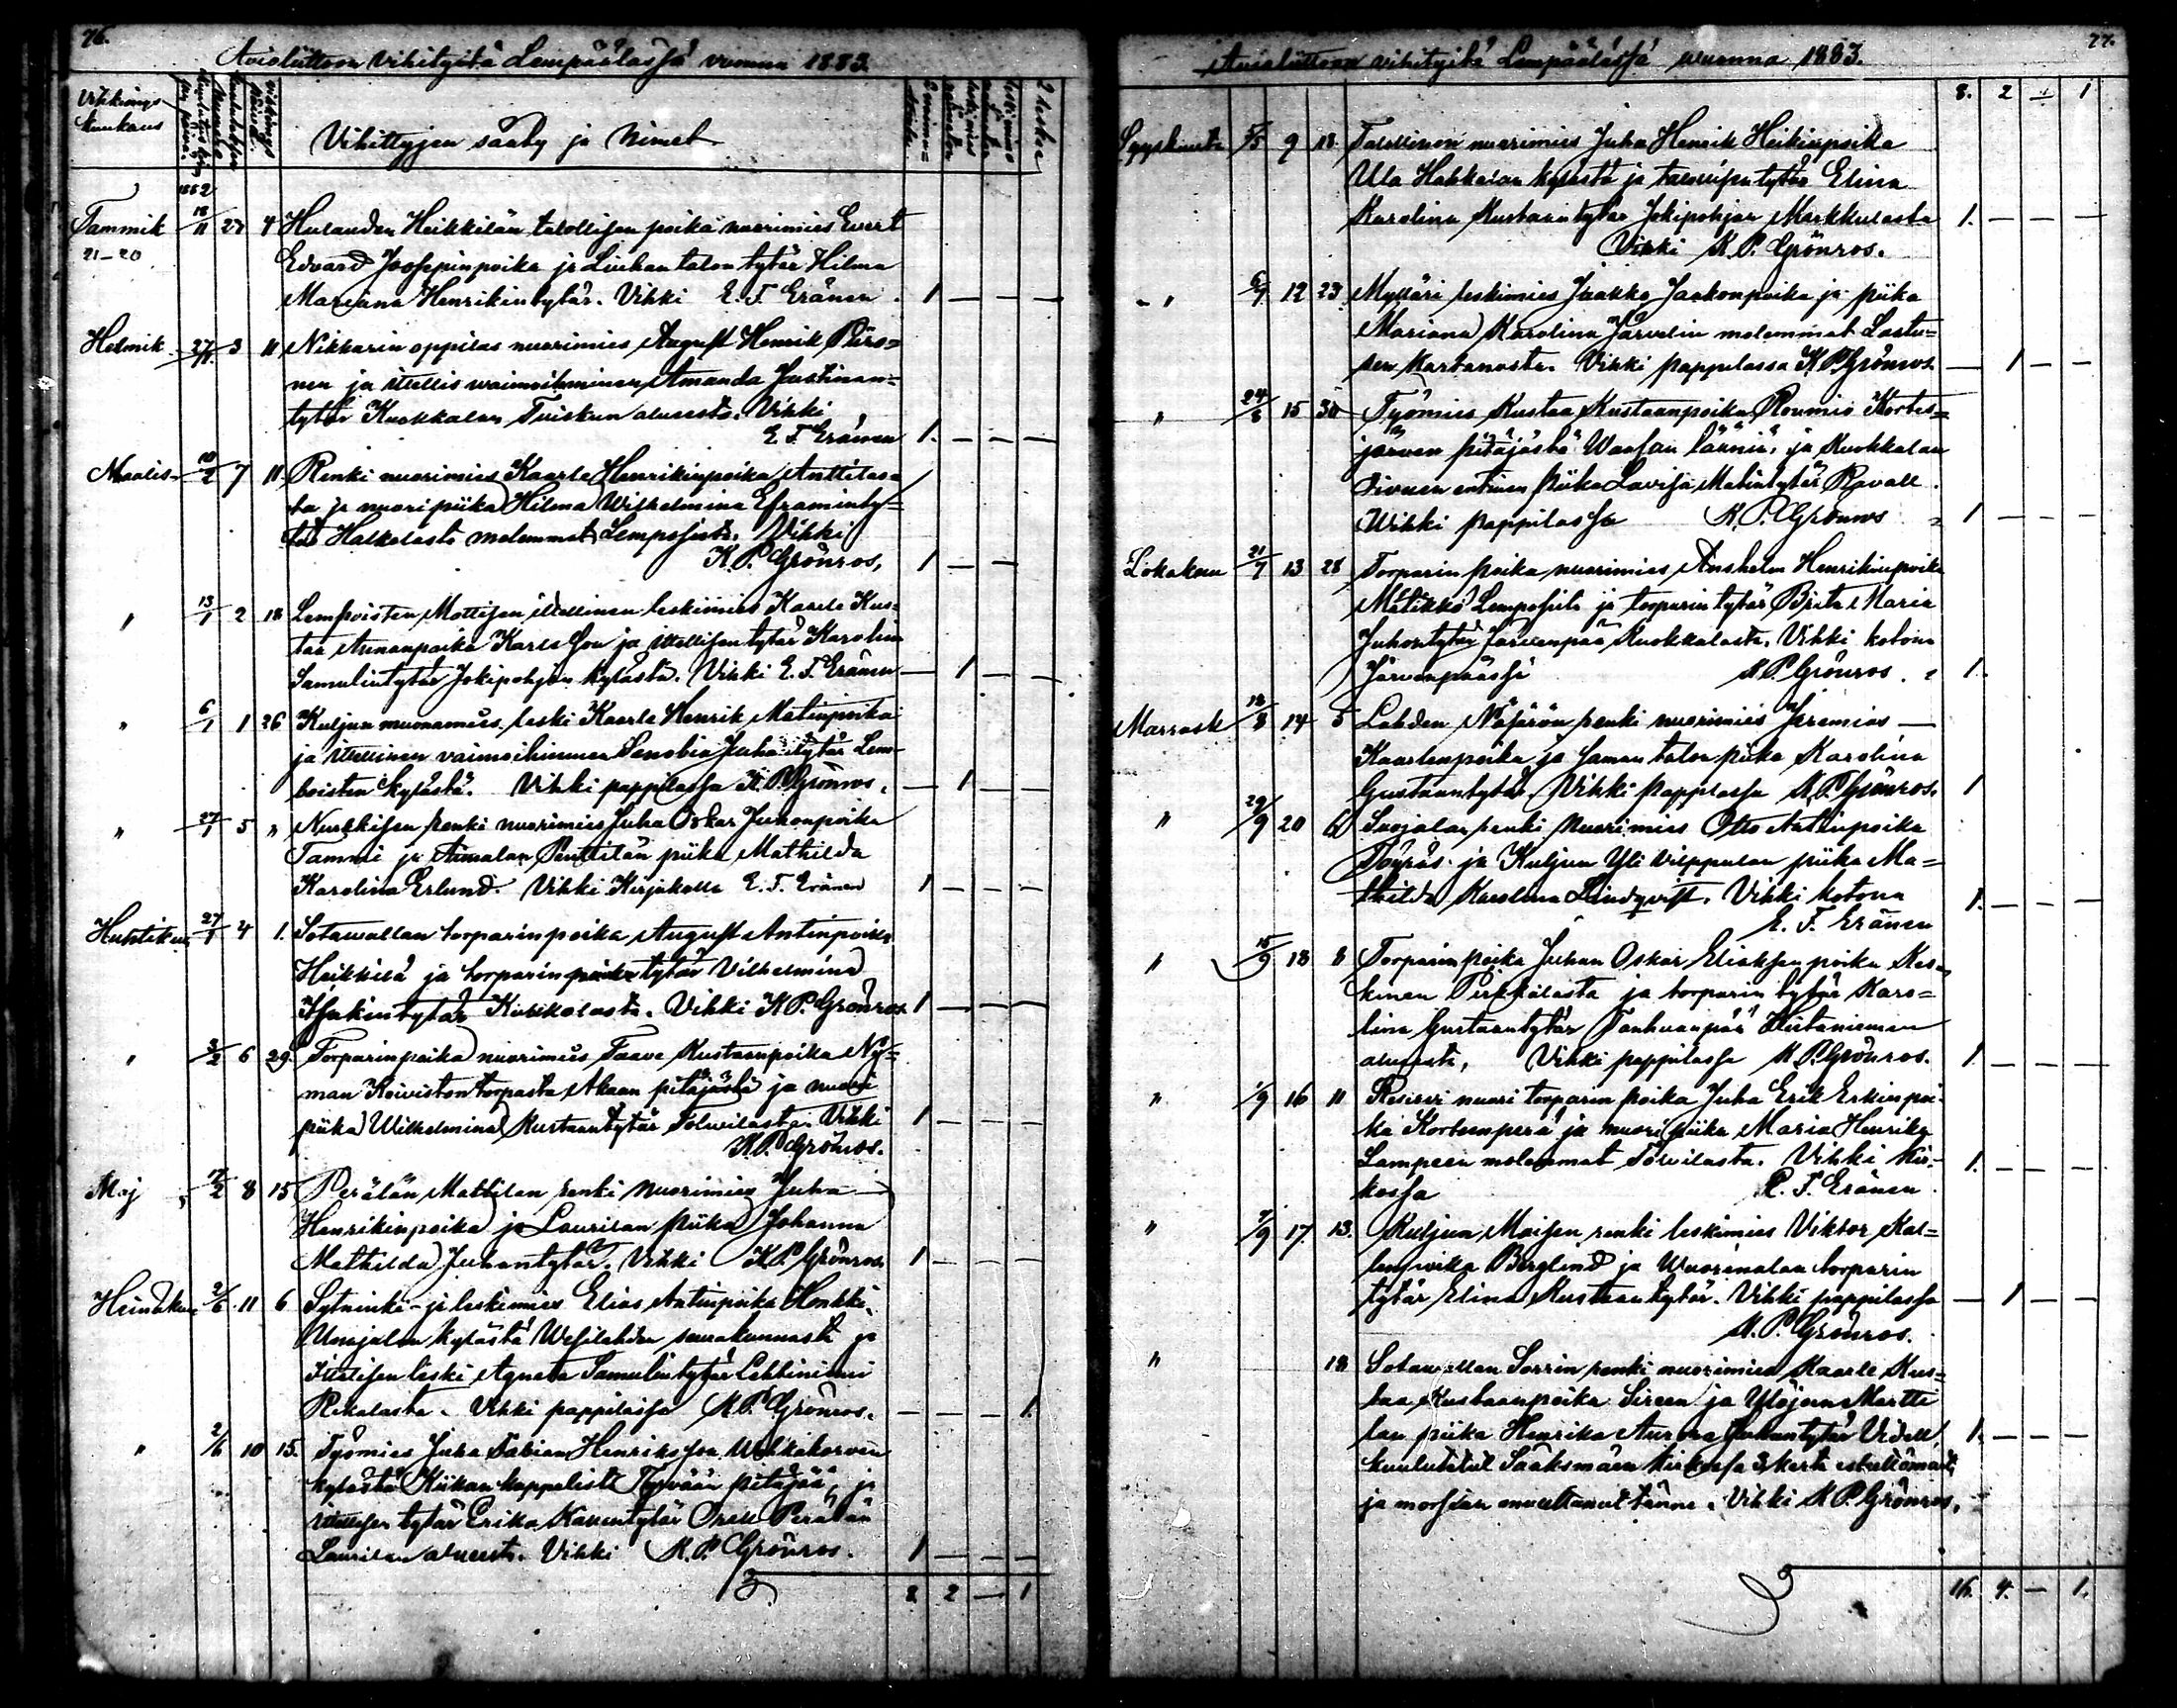 76.
Avioliittoon vihityitä Lempäälässä vuonna 1883.
Vihkimys-
kuukaus
Vihittyjen sääty ja Nimet
2 leskeä
1882
Tammik 18/11 27 4 Hulauden Heikkilän talollisen poika nuorimies Evert
21-20 Edvard Josefinpoika ja Liuhan talon tytär Hilma
Mariana Henrikintytär. Vihki E. F. Eränen. 1 — — —
Helmik. 3 11 Nikkarin oppilas nuorimies August Henrik Piiro=
nen ja itellis vaimoihminen Amanda Justinan=
tytär Kuokkalan Tuiskun alueesta. Vihki
E. F. Eränen 1. — — —
Maalis- 10/2 7 11. Renki nuorimies Kaarle Henrikinpoika Anttilas=
ta ja nuori piika Hilma Wilhelmina Eframinty=
tär Halkolasta molemmat Lempoisista. Vihki
K. P. Grönros, 1 — —
" 13/1 2 18 Lempoisten Mottisen itellinen leskimies Kaarle Kus=
taa Annanpoika Karlsson ja itellisen tytär Karolina
Samulintytär Jokipohjan kylästä. Vihki E. F. Eränen — 1 — —
" 6/1 1 26 Kuljun muonamies leski Kaarle Henrik Matinpoika
ja itellinen vaimoihminen Senobia Juhantytär Lem-
boisten kylästä. Vihki pappilassa K. P. Grönros. — 1 — —
" 27/1 5 " Nurkkisen renki nuorimies Juha Oskar Juhonpoika
Tammi ja Aimalan Penttilän piika Mathilda
Karolina Erlund. Vihki Kirjakolla E. F. Eränen 1 — — —
Huhtikuu 27/1 4 1. Sotavallan torparinpoika August Antinpoika
Heikkilä ja torparin tytär Vilhelmina
Isakintytär Kuokkalasta. Vihki K. P. Grönros. 1 — — —
" 3/2 6 29. Torparinpoika nuorimies Taave Kustaanpoika Ny=
man Koiviston torpasta Akaan pitäjästä ja nuori
piika Wilhelmina Kustaantytär Tolvilasta. Vihki 1 — — —
K. P. Grönros.
Maj 17/2 8 15 Perälän Mattilan renki nuorimies Juha
Henrikinpoika ja Laurilan piika Johanna
Mathilda Juhantytär. Vihki K. P. Grönros. 1 — — —
Heinäkuu 2/6 11 6 Sytninki- ja leskimies Elias Antinpoika Honkki
kylästä Wesilahden seurakunnasta ja
Itellisen leski Agneta Samulintytär Lehtiniemi
Rikalasta. Vihki pappilassa K. P. Grönros. — — — 1.
" 2/6 10 15. Työmies Juha Fabian Henriksson
kylästä Kiikan kappelista Tyrvään pitäjää, ja
itellisen tytär Erika Perälän
Laurilan alueesta. Vihki K. P. Grönros. 1 — — —
8 2 — 1

77.
Avioliittoon vihityitä Lempäälässä vuonna 1883.
8. 2 — 1
Syyskuuta 9 18. Talollinen nuorimies Juha Henrik Heikinpoika
Ula Hakkalan kylästä ja talollisen tytär Elina
Karolina Kustaantytär Jokipohjan Markkulasta 1. — — —
Vihki K. P. Grönros.
" 12 23 Mylläri leskimies Jaakko Jaakonpoika ja piika
Mariana Karolina Järvelin molemmat Lastu=
sen kartanosta. Vihki pappilassa K. P. Grönros. — 1 — —
" 24/8 15 30 Työmies Kustaa Kustaanpoika Roumio Kortes=
järven pitäjästä Waasan lääniä, ja Kuokkalan
Sivusen entinen piika Lovisa Matintytär Ravall.
Wihki pappilassa K. P. Grönros 1 — — —
Lokakuu 21/7 13 28 Torparin poika nuorimies Anshelm Henrikinpoika
Mätikkö Lempoisista ja torparin tytär Brita Maria
Juhontytär Järvenpää Kuokkalasta. Vihki kotona
Järvenpäässä K. P. Grönros. 1.
Marrask 18/8 14 5 Lahden Näfärön renki nuorimies Jeremias —
Kaarlenpoika ja saman talon piika Karolina
Gustaantytär. Vihki pappilassa K. P. Grönros. 1
" 29/9 20 6 Suojalan renki nuorimies Otto Antinpoika
Töyräs ja Kuljun Yli Vilppulan piika Ma=
thilda Karolina Lindqvist. Vihki kotona 1. — — —
E. F. Eränen
" 15/9 18 8 Torparin poika Juhan Oskar Eliaksen poika Kes=
kinen Pirkkalasta ja torparin tytär Karo=
lina Gustaantytär Tanhuanpää Hiitaniemen
alueesta, Vihki pappilassa K. P. Grönros. 1. — — —
" 1/9 16 11 Reservi nuori torparin poika Juha Erik Erkinpoi-
ka Kortenperä ja nuori piika Maria Henrika
Lampeen molemmat Tolvilasta. Vihki kir= 1. — — —
kossa E. F. Eränen
" 17. 13. Kuljun Moisen renki leskimies Viktor Kal=
lenpoika Berglind ja Wuorinalan torparin
tytär Elina Kustaantytär. Vihki pappilassa — 1 — —
K. P. Grönros.
" 18 Sotavallan Sorrin renki nuorimies Kaarle Kus=
taa Kustaanpoika Sireen ja Ylöjen Martti
lan piika Henrika Aurora Juhantytär Videll, 1. — — —
kuulutetut Sääksmäen kirkossa 3 kerta esteettömästi
ja morsian muuttanut tänne. Vihki K. P. Grönros,
16. 4. — 1.